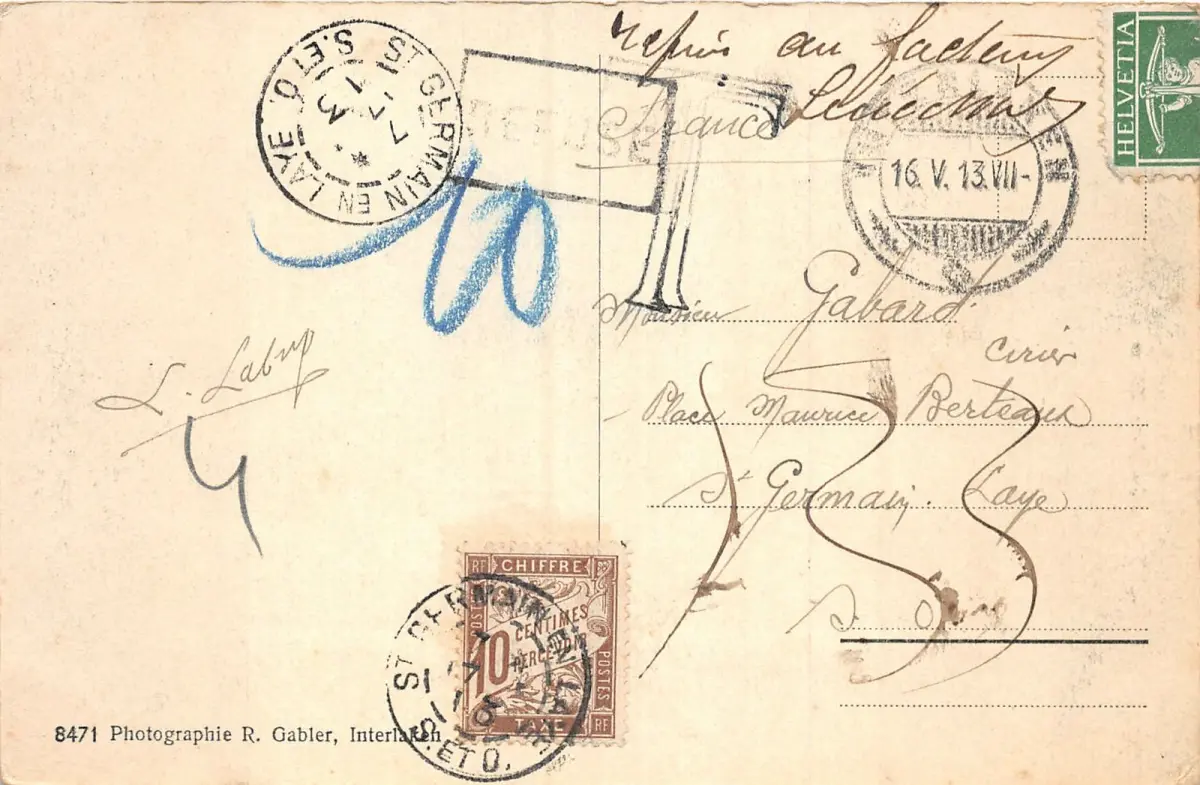 au facteur
HELVETIA
ST GERMAIN EN LAYE
S. ET O.
France
REFUSÉ
T
16. V. 13. VII-
Monsieur Gabard
Cirier
Place Maurice Berteaux
St Germain. Laye
S. Oise
L.
10
RF CHIFFRE
10 CENTIMES
À PERCEVOIR
POSTES
TAXE RF
ST GERMAIN EN LAYE
S. ET O.
8471 Photographie R. Gabler, Interlaken